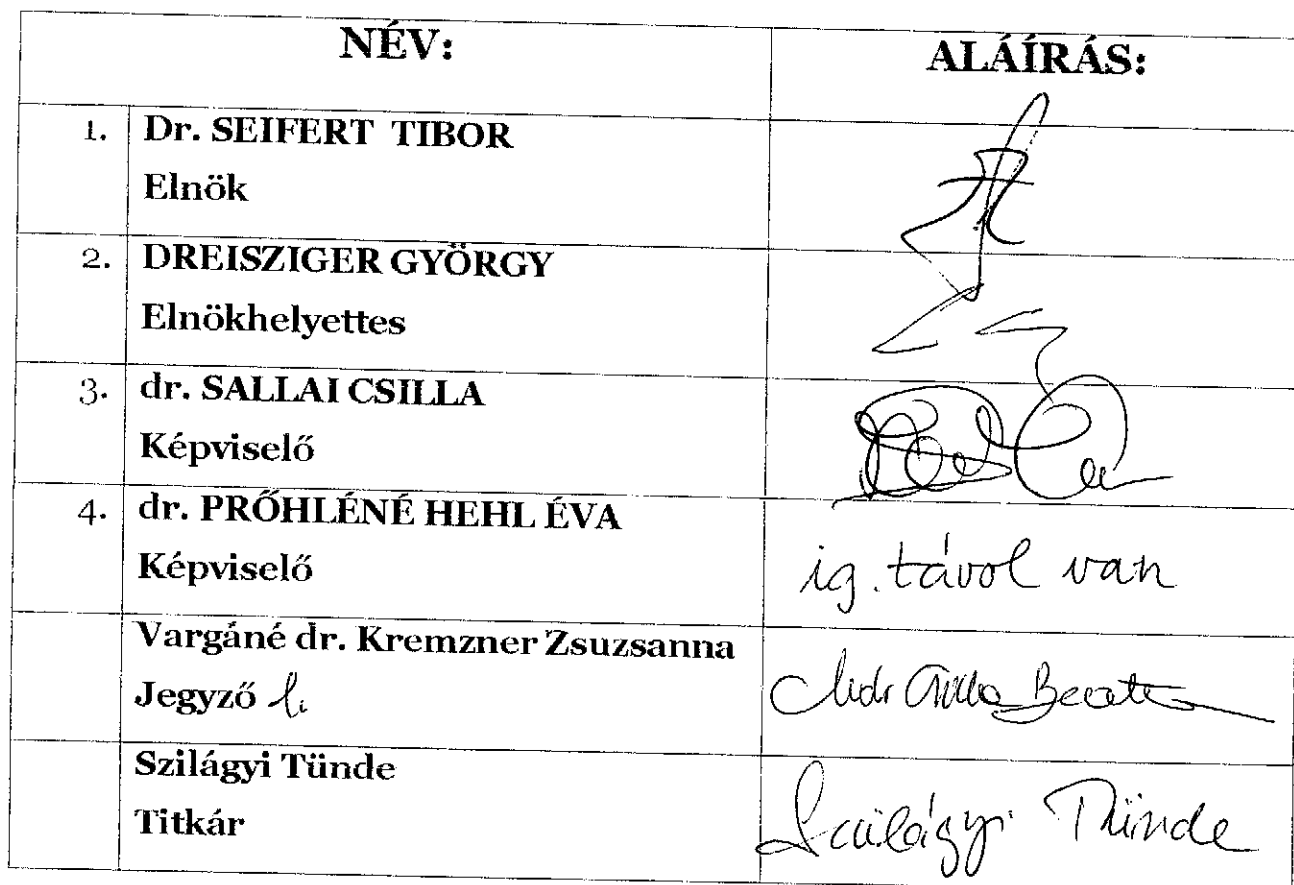 NÉV: ALÁÍRÁS:
1. Dr. SEIFERT TIBOR
Elnök
2. DREISZIGER GYÖRGY
Elnökhelyettes
3. dr. SALLAI CSILLA
Képviselő
4. dr. PRŐHLÉNÉ HEHL ÉVA
Képviselő
ig. távol van
Vargáné dr. Kremzner Zsuzsanna
Jegyző h.
Szilágyi Tünde
Titkár
Szilágyi Tünde